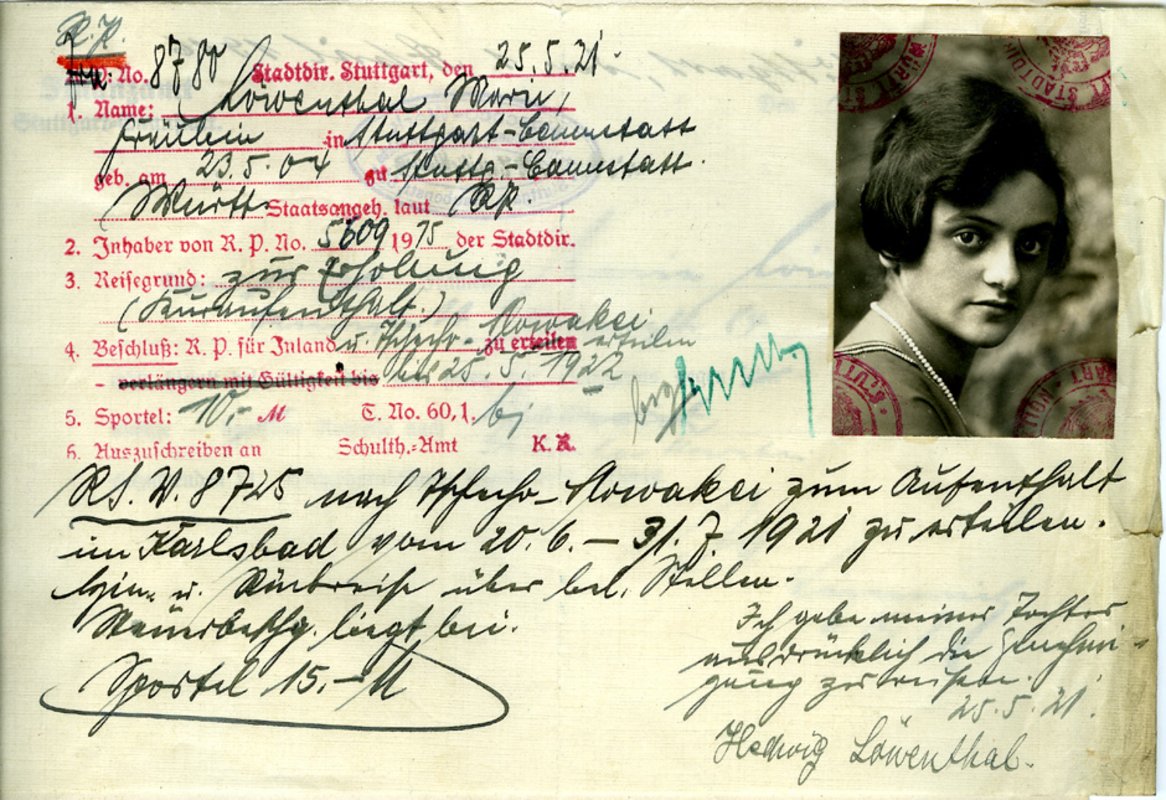 R. P.
R.P. No. 8780 Stadtdir. Stuttgart, den 25.5.21.
1. Name: Löwenthal Marie,
Fräulein in Stuttgart-Cannstatt
geb. am 23.5.04 zu Stuttg.-Cannstatt.
Württ. Staatsangeh. laut RP.
2. Inhaber von R. P. No. 5609 1915 der Stadtdir.
3. Reisegrund: zur Erholung
(Kuraufenthalt.)
4. Beschluß: R. P. für Inland u. Tschecho-Slowakei zu erteilen erteilen
- verlängern mit Gültigkeit bis bis 25.5.1922
5. Sportel: 10,- M T. No. 60,1.
6. Auszuschreiben an Schulth.=Amt K. K.
RS. V. 8725 nach Tschecho-Slowakei zum Aufenthalt
in Karlsbad vom 20.6. – 31.7.1921 zu erteilen.
Hin- u. Rückreise über bel. Stellen.
Steuerbeschg. liegt bei.
Sportel 15.- M
Ich gebe meiner Tochter
ausdrücklich die Genehmi-
gung zu reisen.
25.5.21.
Hedwig Löwenthal.